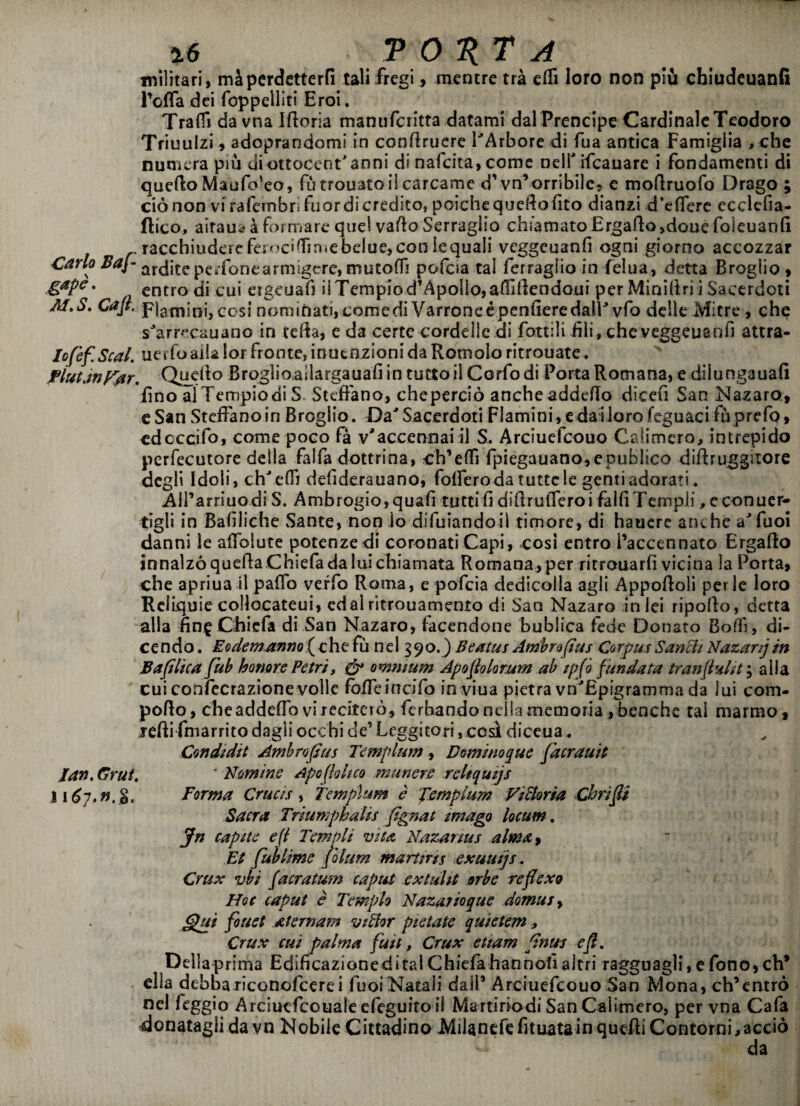 26 PORTA
militari, mà perdettersi tali fregi, mentre trà essi loro non più chiudeuansi
l'ossa dei soppelliti Eroi.
Trassi da vna Istoria manuscritta datami dal Prencipe Cardinale Teodoro
Triuulzi, adoprandomi in construere l'Arbore di sua antica Famiglia, che
numera più di ottocent'anni di nascita, come nell'iscauare i fondamenti di
questo Mausoleo, fù trouato il carcame d'vn'orribile, e mostruoso Drago;
ciò non vi rasembri fuor di credito, poiche questo sito dianzi d'essere ecclesia-
stico, aitaua à formare quel vasto Serraglio chiamato Ergasto, doue soleuansi
racchiudere ferocissime belue, con le quali veggeuansi ogni giorno accozzar
Carlo Bas- ardite persone armigere, mutossi poscia tal serraglio in selua, detta Broglio,
gapè. entro di cui ergeuasi il Tempio d'Apollo, assistendoui per Ministri i Sacerdoti
M. S. Cast. Flamini, così nominati, come di Varrone è pensiere dall'vso delle Mitre, che
s'arrecauano in testa, e da certe cordelle di sottili fili, che veggeuansi attra-
Iosef. Scal. uerso alla lor fronte, inuenzioni da Romolo ritrouate.
Plut. in Var. Questo Broglio allargauasi in tutto il Corso di Porta Romana, e dilungauasi
sino al Tempio di S. Steffano, che perciò anche addesso dicesi San Nazaro,
e San Steffano in Broglio. Da' Sacerdoti Flamini, e dai loro seguaci fù preso,
ed occiso, come poco fà v'accennai il S. Arciuescouo Calimero, intrepido
persecutore della falsa dottrina, ch'essi spiegauano, e publico distruggitore
degli Idoli, ch'essi desiderauano, fossero da tutte le genti adorati.
All'arriuo di S. Ambrogio, quasi tutti si distrussero i falsi Templi, e conuer-
tigli in Basiliche Sante, non lo disuiando il timore, di hauere anche a' suoi
danni le assolute potenze di coronati Capi, così entro l'accennato Ergasto
innalzò questa Chiesa da lui chiamata Romana, per ritrouarsi vicina la Porta,
che apriua il passo verso Roma, e poscia dedicolla agli Appostoli per le loro
Reliquie collocateui, ed al ritrouamento di San Nazaro in lei riposto, detta
alla fine Chiesa di San Nazaro, facendone bublica fede Donato Bossi, di-
cendo. Eodem anno (che fù nel 390.) Beatus Ambrosius Corpus Sancti Nazarij in
Basilica sub honore Petri, & omnium Apostolorum ab ipso fundata transtulit; alla
cui consecrazione volle fosse inciso in viua pietra vn'Epigramma da lui com-
posto, che addesso vi reciterò, serbandone nella memoria, benche tal marmo,
resti smarrito dagli occhi de' Leggitori, così diceua.
Condidit Ambrosius Templum, Dominoque sacrauit
Ian. Grut. Nomine Apostolico munere reliquijs
1167. n. 8. Forma Crucis, Templum è Templum Victoria Christi
Sacra Triumphalis signat imago locum.
In capite est Templi vitæ Nazarius almæ,
Et sublime solum martiris exuuijs.
Crux vbi sacratum caput extulit orbe reflexo
Hoc caput è Templo Nazarioque domus,
Qui fouet æternam victor pietate quietem,
Crux cui palma fuit, Crux etiam sinus est.
Della prima Edificazione di tal Chiesa hannosi altri ragguagli, e sono, ch'
ella debba riconoscere i suoi Natali dall'Arciuescouo San Mona, ch'entrò
nel seggio Arciuescouale eseguito il Martirio di San Calimero, per vna Casa
donatagli da vn Nobile Cittadino Milanese situata in questi Contorni, acciò
da